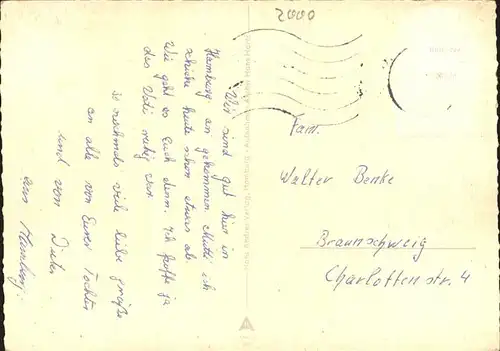 2000
Wir sind gut hier in
Hamburg an gekommen. Mutti ich
schicke heute schon etwas ab
Wie geht es Euch denn. Ich hoffe ja
das Vati ruhig
so nochmals viele liebe Grüße
an alle von Eurer Tochter
und von Dieter
aus Hamburg.
Fam.
Walter Benke
Braunschweig
Charlottenstr. 4